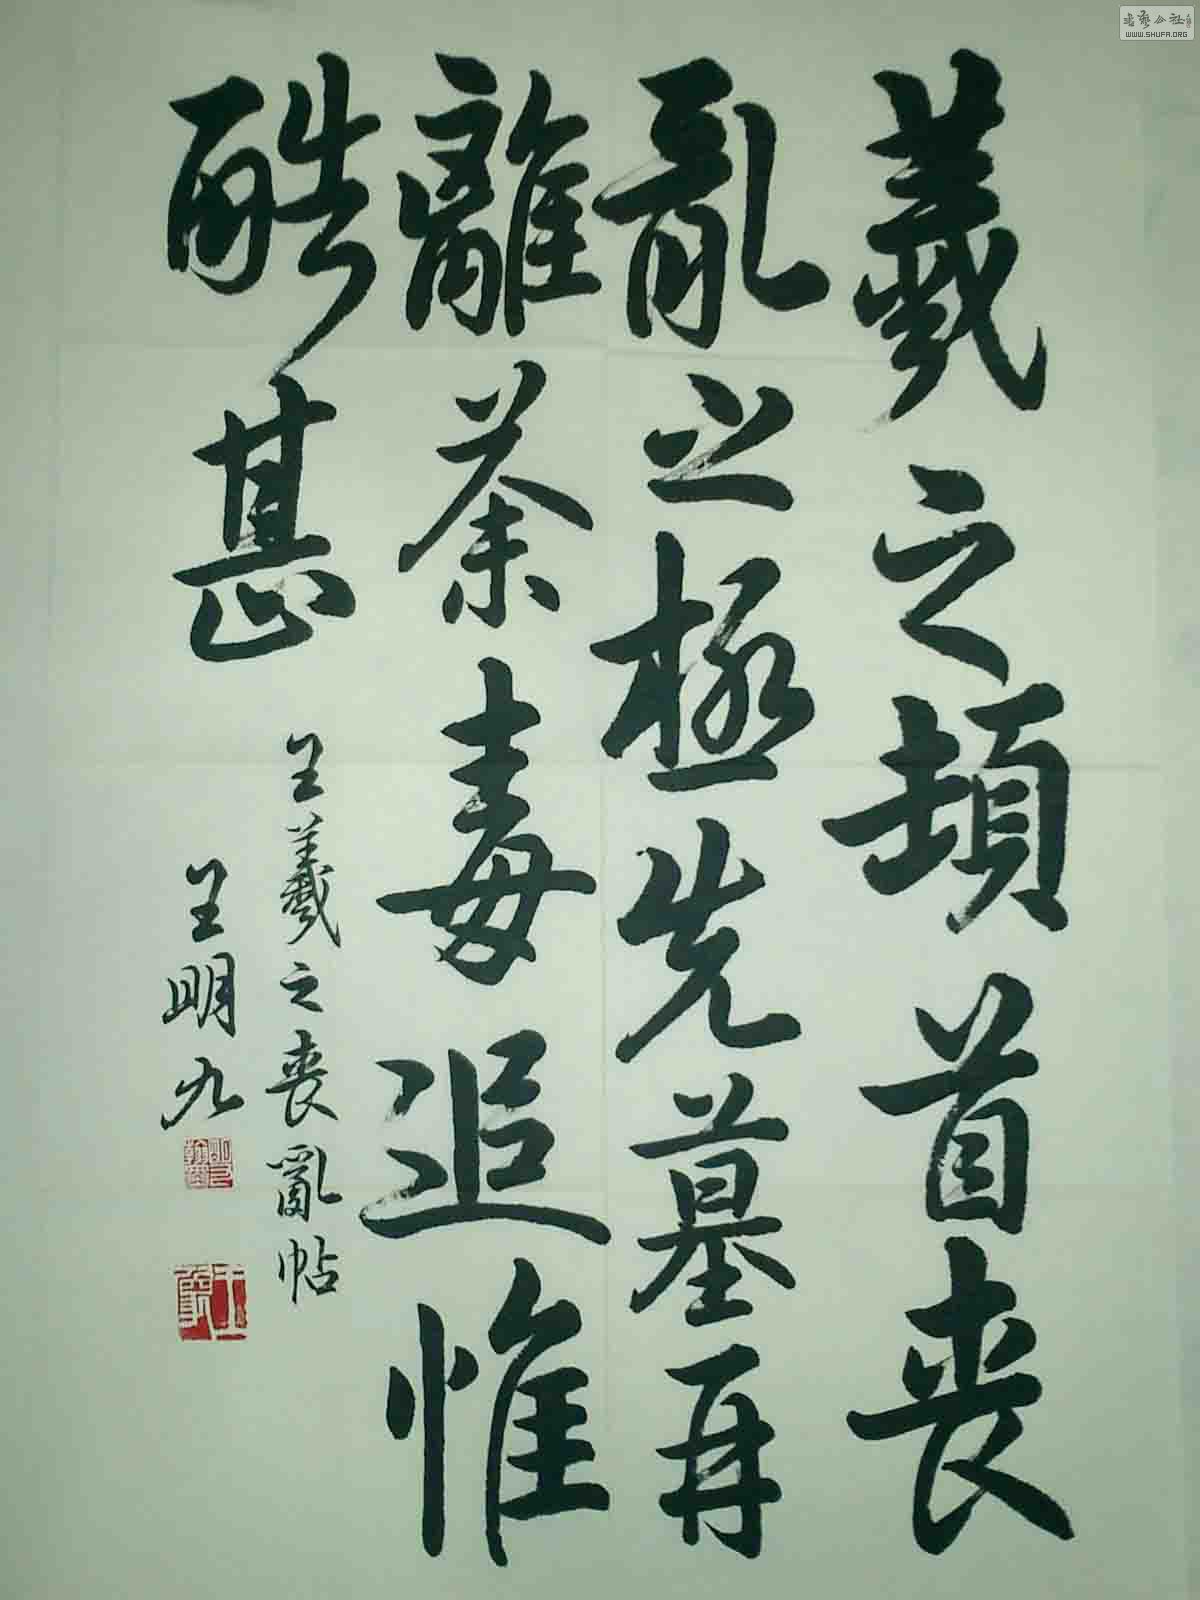 羲之頓首喪
亂之極先墓再
離荼毒追惟
酷甚
王羲之喪亂帖
王明九
书艺公社
WWW.SHUFA.ORG